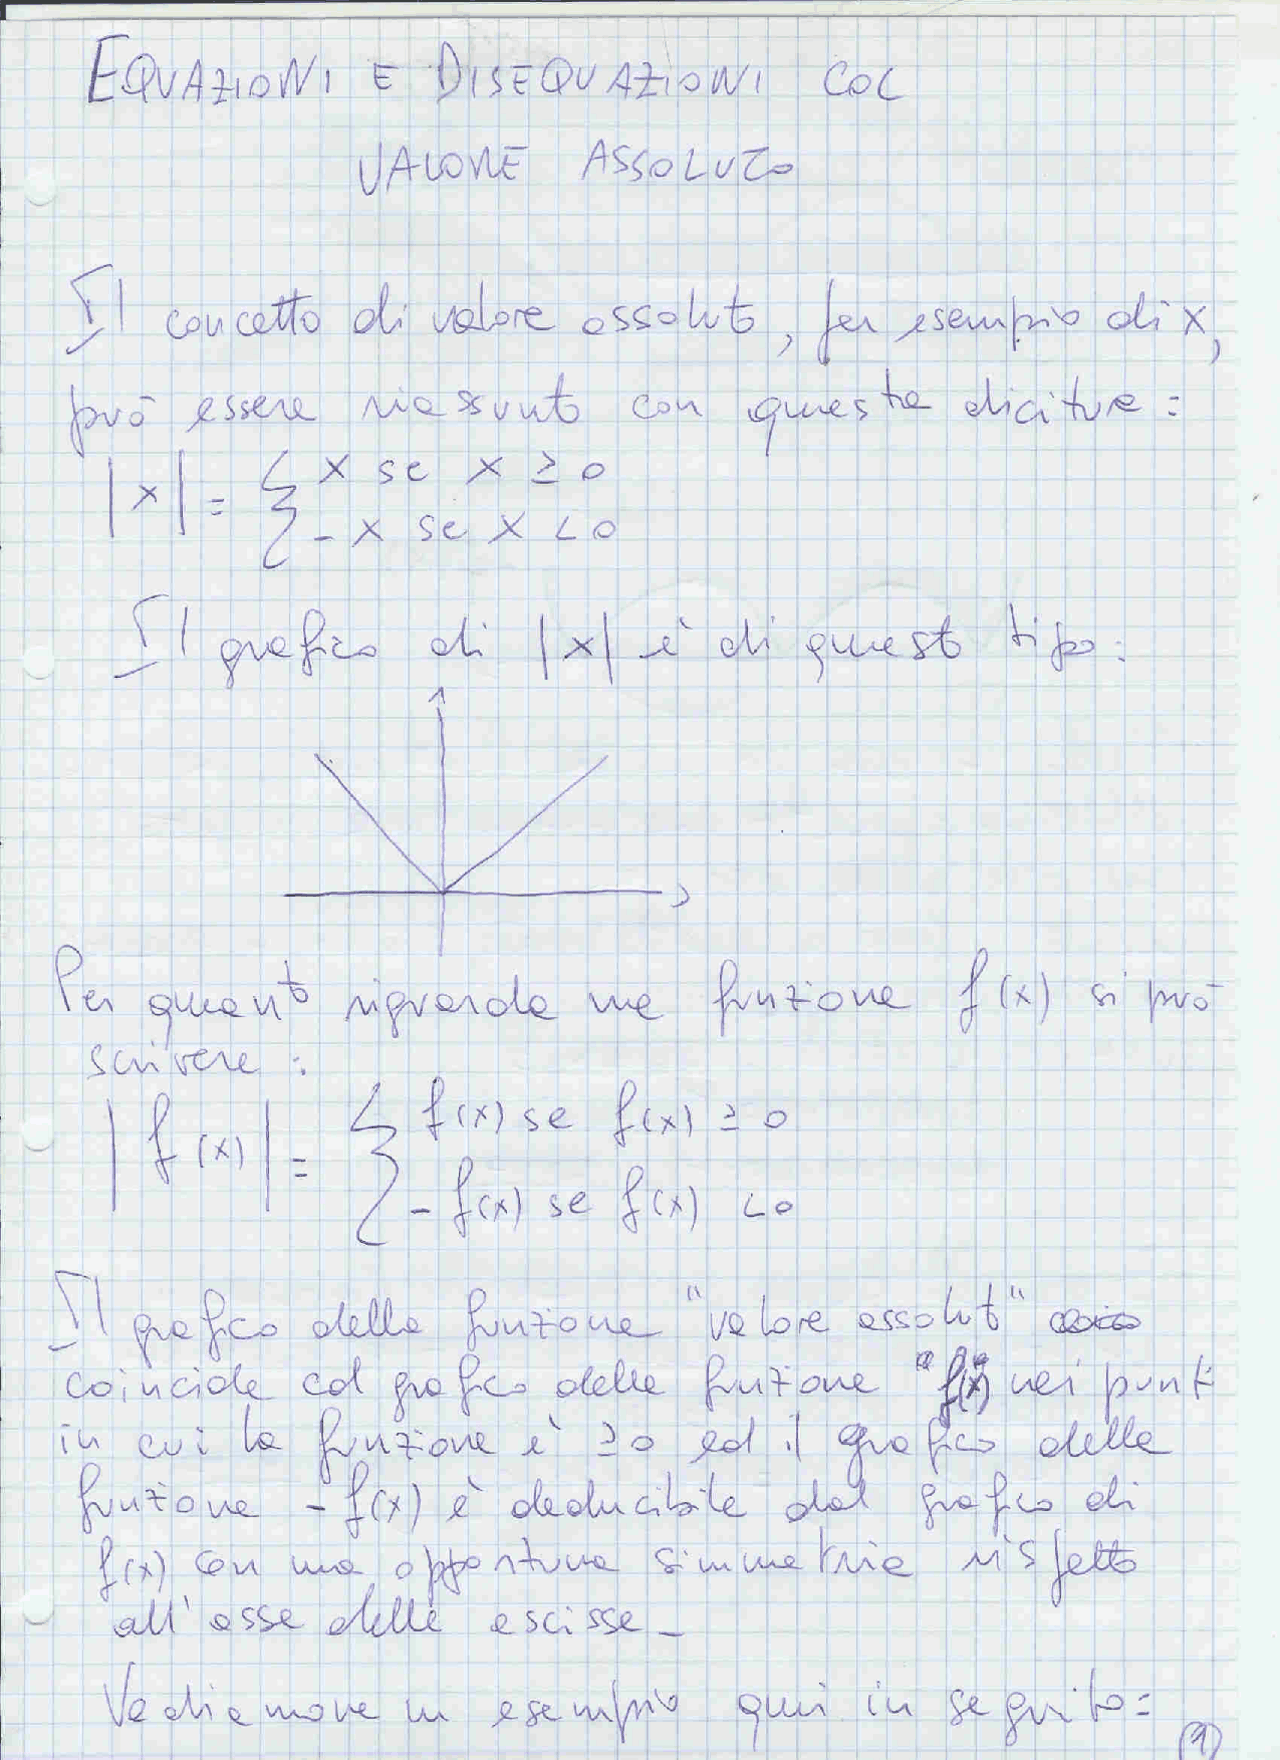 EQUAZIONI E DISEQUAZIONI COL
VALORE ASSOLUTO
Il concetto di valore assoluto, per esempio di x,
può essere riassunto con questa dicitura:
|x| = { x se x ≥ 0
- x se x < 0
Il grafico di |x| è di questo tipo:
Per quanto riguarda una funzione f(x) si può
scrivere:
|f(x)| = { f(x) se f(x) ≥ 0
- f(x) se f(x) < 0
Il grafico della funzione "valore assoluto"
coincide col grafico della funzione "f(x)" nei punti
in cui la funzione è ≥0 ed il grafico della
funzione - f(x) è deducibile dal grafico di
f(x) con una opportuna simmetria rispetto
all'asse delle ascisse_
Vediamone un esempio qui in seguito:
(1)